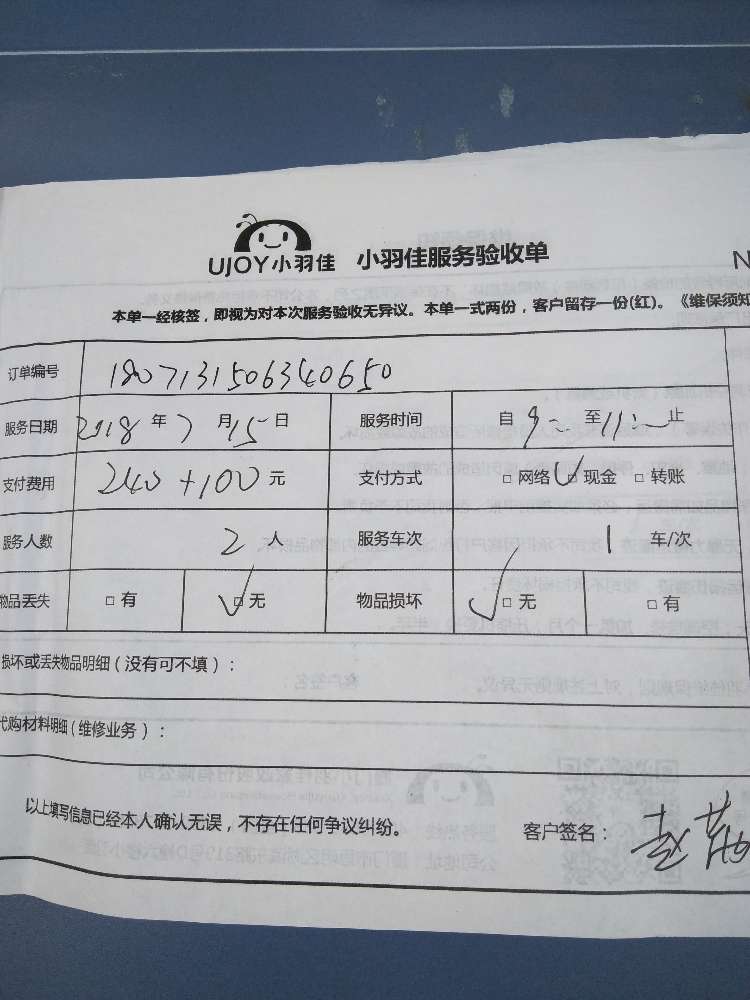 UJOY小羽佳 小羽佳服务验收单 N
本单一经核签，即视为对本次服务验收无异议。本单一式两份，客户留存一份(红)。《维保须知
订单编号 1807131506340650
服务日期 2018 年 7 月 15 日 服务时间 自 9:00 至 11:00 止
支付费用 240+100 元 支付方式 □网络 □现金 □转账
服务人数 2 人 服务车次 1 车/次
物品丢失 □有 □无 物品损坏 □无 □有
损坏或丢失物品明细（没有可不填）：
代购材料明细（维修业务）：
以上填写信息已经本人确认无误，不存在任何争议纠纷。 客户签名：